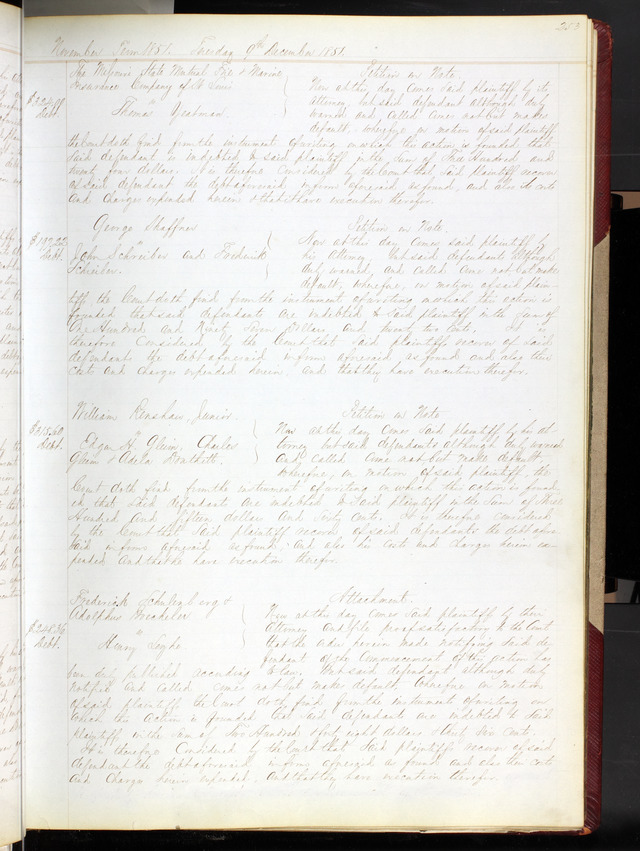 253
November Term 1851. Tuesday 9th December 1851.
The Missouri State Mutual Fire & Marine Petition on Note.
Insurance Company of St Louis Now at this day comes said plaintiff by its
$224.00 Debt. vs attorney, but said defendant although duly
Thomas Yeatman warned and called comes not but makes
default, wherefore on motion of said plaintiff
the Court doth find from the instrument of writing on which this action is founded, that
said defendant is indebted to said plaintiff in the sum of Two Hundred and
twenty four dollars. It is therefore considered by the Court that said plaintiff recover
of said defendant the debt aforesaid in form aforesaid as found, and also its costs
and charges expended herein & that it have execution therefor.
George Shaffner Petition on Note
$197.22 Debt. vs Now at this day comes said plaintiff by
John Schreiber and Frederick his attorney, but said defendants although
Schreiber. duly warned, and called come not but make
default, wherefore, on motion of said plain-
tiff, the Court doth find from the instrument of writing on which this action is
founded that said defendants are indebted to said plaintiff in the sum of
One Hundred and Ninety Seven Dollars and twenty two cents. It is
therefore considered by the Court that said plaintiff recover of said
defendants the debt aforesaid in form aforesaid as found and also his
costs and charges expended herein. and that they have execution therefor.
William Renshaw, Junior. Petition on Note
$315.60 Debt. vs Now at this day comes said plaintiff by his at
Edgar H. Glenn, Charles torney but said defendants although duly warned
Glenn & Adela and called come not but make default
wherefore, on motion of said plaintiff, the
Court doth find from the instrument of writing on which the action is found
ed, that said defendants are indebted to said plaintiff in the sum of Three
Hundred and fifteen dollars and sixty cents. It is therefore considered
by the Court that said plaintiff recover of said defendants the debt afore
said in form aforesaid as found, and also his costs and charges herein ex-
pended and that he have execution therefor.
Frederick & Attachment.
Adolphus Now at this day comes said plaintiff by their
$248.36 Debt. vs attorney and file proof satisfactory to the Court
Henry that the order herein made notifying said de-
fendant of the commencement of this action has
been duly published according to law. But said defendant although duly
notified and called comes not but makes default. Wherefore on motion
of said plaintiff the Court doth find from the instruments of writing on
which this action is founded that said defendants are indebted to said
plaintiff in the sum of Two Hundred & forty eight dollars & thirty six cents.
It is therefore considered by the Court that said plaintiffs recover of said
defendant the debt aforesaid in form aforesaid as found and also their costs
and charges herein expended, and that they have execution therefor.